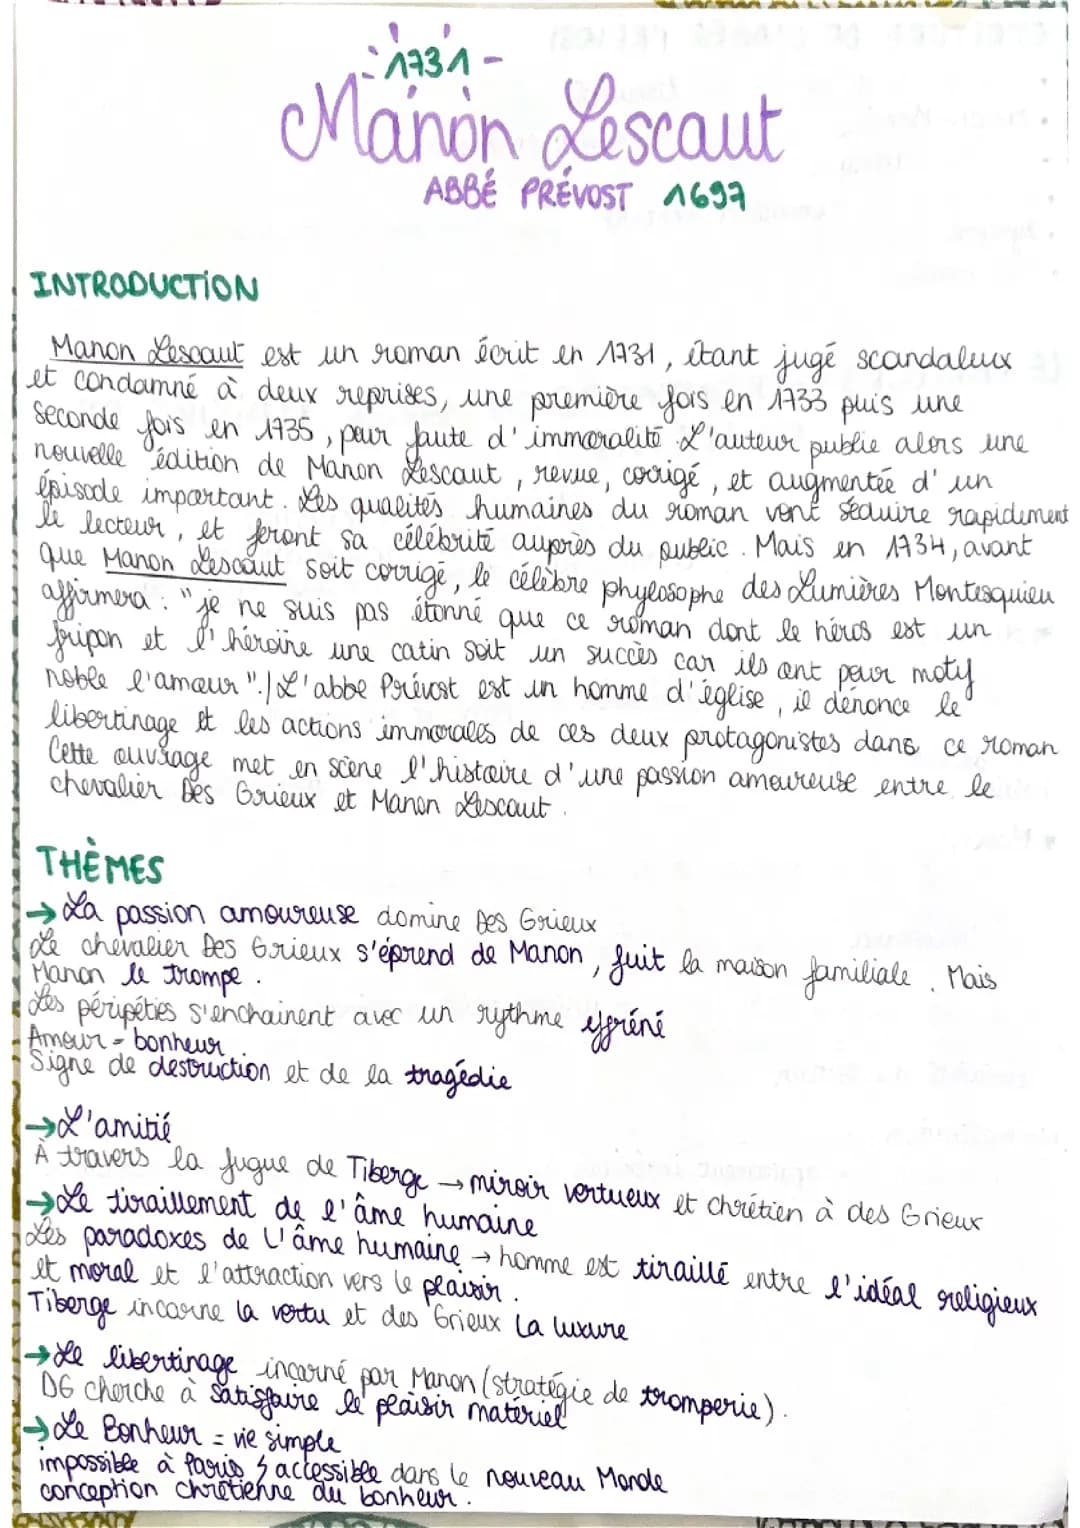 - 1731 -
Manon Lescaut
ABBÉ PRÉVOST 1697
INTRODUCTION
Manon Lescaut est un roman écrit en 1731, étant jugé scandaleux
et condamné à deux reprises, une première fois en 1733 puis une
seconde fois en 1735, pour faute d'immoralité. L'auteur publie alors une
nouvelle édition de Manon Lescaut, revue, corrigé, et augmentée d'un
épisode important. Les qualités humaines du roman vont séduire rapidement
le lecteur, et feront sa célébrité auprès du public. Mais en 1734, avant
que Manon Lescaut soit corrigé, le célèbre phylosophe des Lumières Montesquieu
affirmera : "je ne suis pas étonné que ce roman dont le héros est un
fripon et l'héroïne une catin soit un succès car ils ont pour motif
noble l'amour"./L'abbe Prévost est un homme d'église, il dénonce le
libertinage et les actions immorales de ces deux protagonistes dans ce roman
Cette ouvrage met en scène l'histoire d'une passion amoureuse entre le
chevalier Des Grieux et Manon Lescaut.
THÈMES
→ La passion amoureuse domine Des Grieux
Le chevalier Des Grieux s'éprend de Manon, fuit la maison familiale. Mais
Manon le trompe.
Les péripéties s'enchainent avec un rythme effréné
Amour = bonheur
Signe de destruction et de la tragédie
→ L'amitié
À travers la fugue de Tiberge → miroir vertueux et chrétien à des Grieux
→ Le tiraillement de l'âme humaine
Les paradoxes de l'âme humaine → homme est tiraillé entre l'idéal religieux
et moral et l'attraction vers le plaisir.
Tiberge incarne la vertu et des Grieux la luxure
→ Le libertinage incarné par Manon (stratégie de tromperie).
DG cherche à satisfaire le plaisir matériel
→ Le Bonheur = vie simple
impossible à Paris accessible dans le nouveau Monde
conception chrétienne du bonheur.